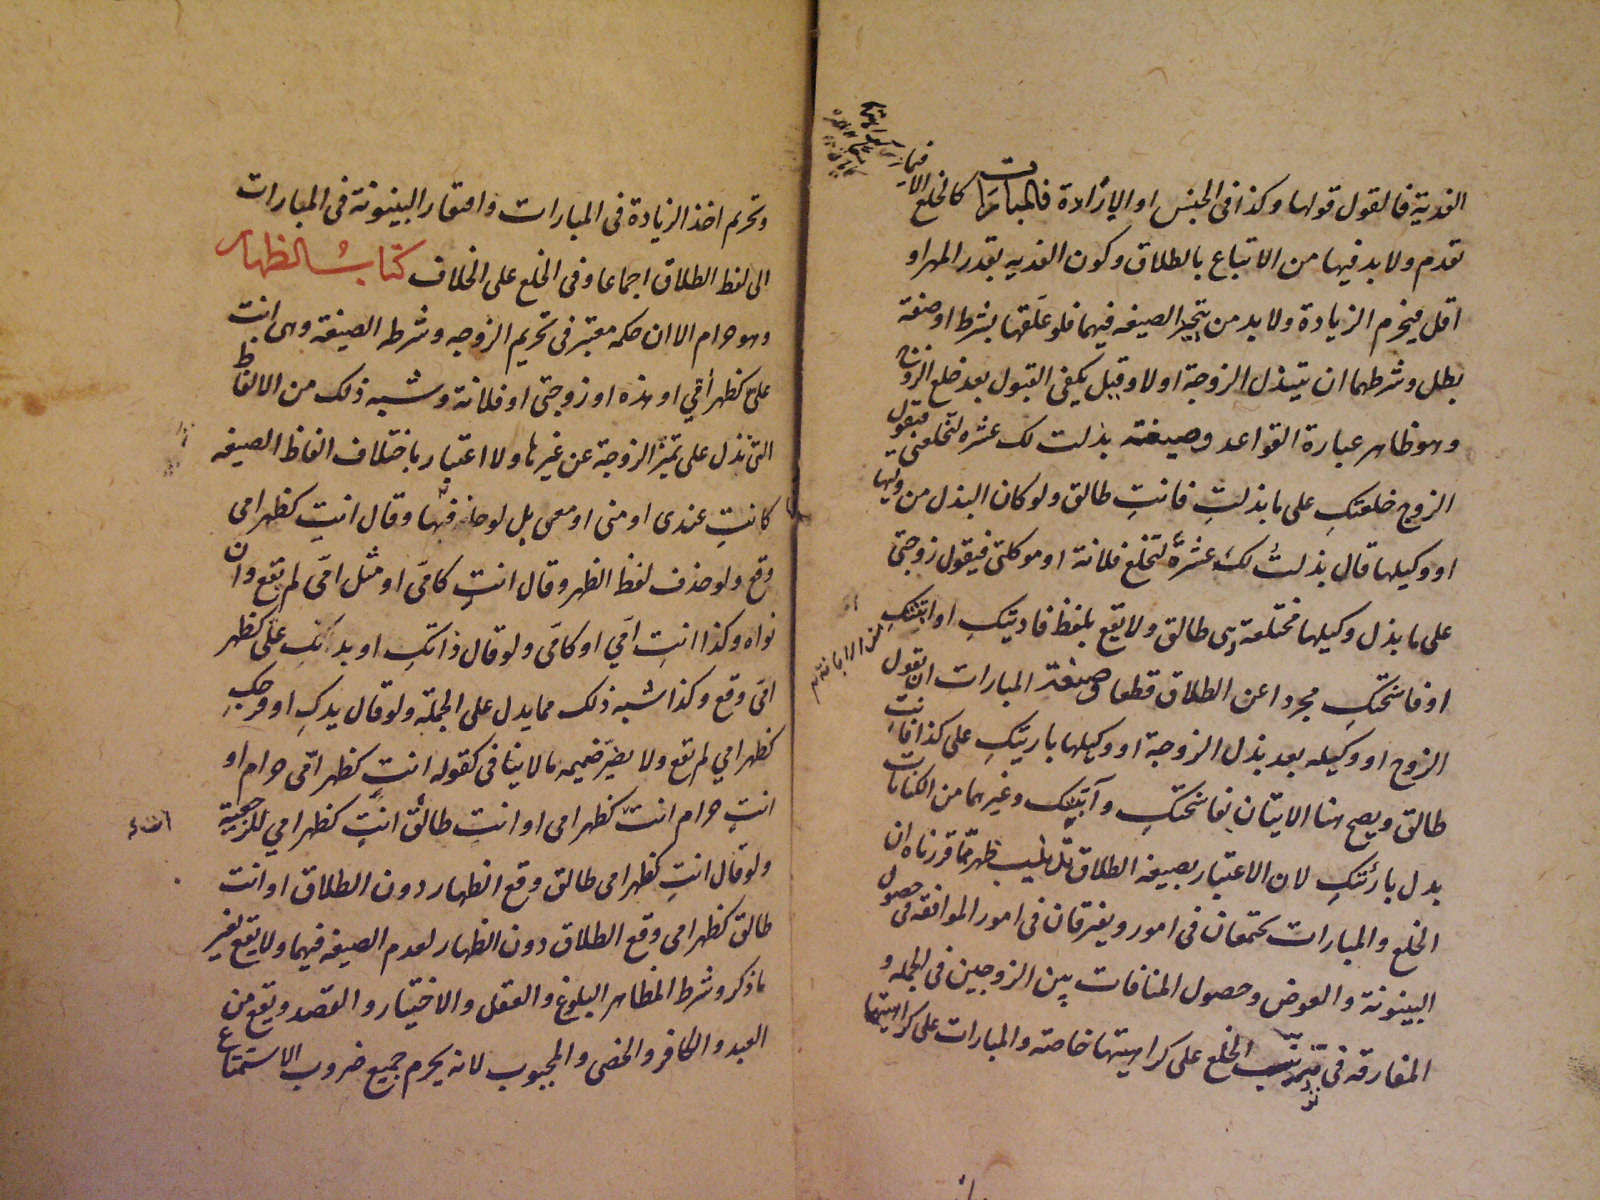 الفدية فالقول قولها وكذا فى الجنس او الارادة فالمبارات كالخلع الا فيما
تقدم ولا بد فيها من الاتباع بالطلاق وكون الفديه بقدر المهر او
اقل فيحرم الزيادة ولا بد من تنجيز الصيغه فيهما فلو علقها بشرط او صفة
بطل وشرطهما ان تبذل الزوجة اولا وقيل يكفى القبول بعد خلع الزوج
وهو ظاهر عبارة القواعد وصيغته بذلت لك عشره لتخلعنى فيقول
الزوج خلعتكِ على ما بذلتِ فانتِ طالق ولو كان البذل من وليها
او وكيلها قال بذلتُ لكَ عشرةً لتخلع فلانة او موكلتى فيقول زوجتى
على ما بذل وكيلها مختلعة هى طالق ولا يقع بلفظ فاديتكِ او ابنتكِ
او فاسختكِ مجردا عن الطلاق قطعا وصيغة المبارات ان يقول
الزوج او وكيله بعد بذل الزوجة او وكيلها باريتكِ على كذا فانتِ
طالق ويصح هنا الاتيان بفاسختكِ وابنتك وغيرهما من الكنايات
بدل بارئتكِ لان الاعتبار بصيغه الطلاق ظهر مما قررناه ان
الخلع والمبارات يجتمعان فى امور ويفترقان فى امور الموافقه فى حصول
البينونة والعوض وحصول المنافات بين الزوجين فى الجمله و
المفارقه فى الخلع على كراهيتها خاصة والمبارات على كراهيتهما
وتحريم اخذ الزيادة فى المبارات وافتقار البينونة فى المبارات
الى لفظ الطلاق اجماعا وفى الخلع على الخلاف كتاب الظهار
وهو حرام الا ان حكمه معتبر فى تحريم الزوجه وشرطه الصيغة وهى انت
علىّ كظهر أمّي او هذه او زوجتى او فلانة وشبه ذلك من الالفاظ
التى تدل على تميّز الزوجة عن غيرها ولا اعتبار باختلاف الفاظ الصيغه
كانتِ عندى او منى او معى بل لو حذفها وقال انتِ كظهر امى
وقع ولو حذف لفظ الظهر وقال انتِ كامّى او مثل امّى لم يقع وان
نواه وكذا انتِ امّي او كامّى ولو قال ذاتكِ او بدنكِ علىّ كظهر
امّى وقع وكذا شبه ذلك مما يدل على الجملة ولو قال يدكِ او فرجكِ
كظهر امي لم يقع ولا يضرّ ضميمه ما لا ينافى كقوله انتِ كظهر امّى حرام او
انتِ حرام انتِ كظهر امى او انتِ طالق انتِ كظهر امي للرجعية
ولو قال انتِ كظهر امى طالق وقع الظهار دون الطلاق او انت
طالق كظهر امى وقع الطلاق دون الظهار لعدم الصيغه فيهما ولا يقع بغير
ما ذكر وشرط المظاهر البلوغ والعقل والاختيار والقصد ويقع من
العبد والكافر والخصى والمجبوب لانه يحرم جميع ضروب الاستمتاع